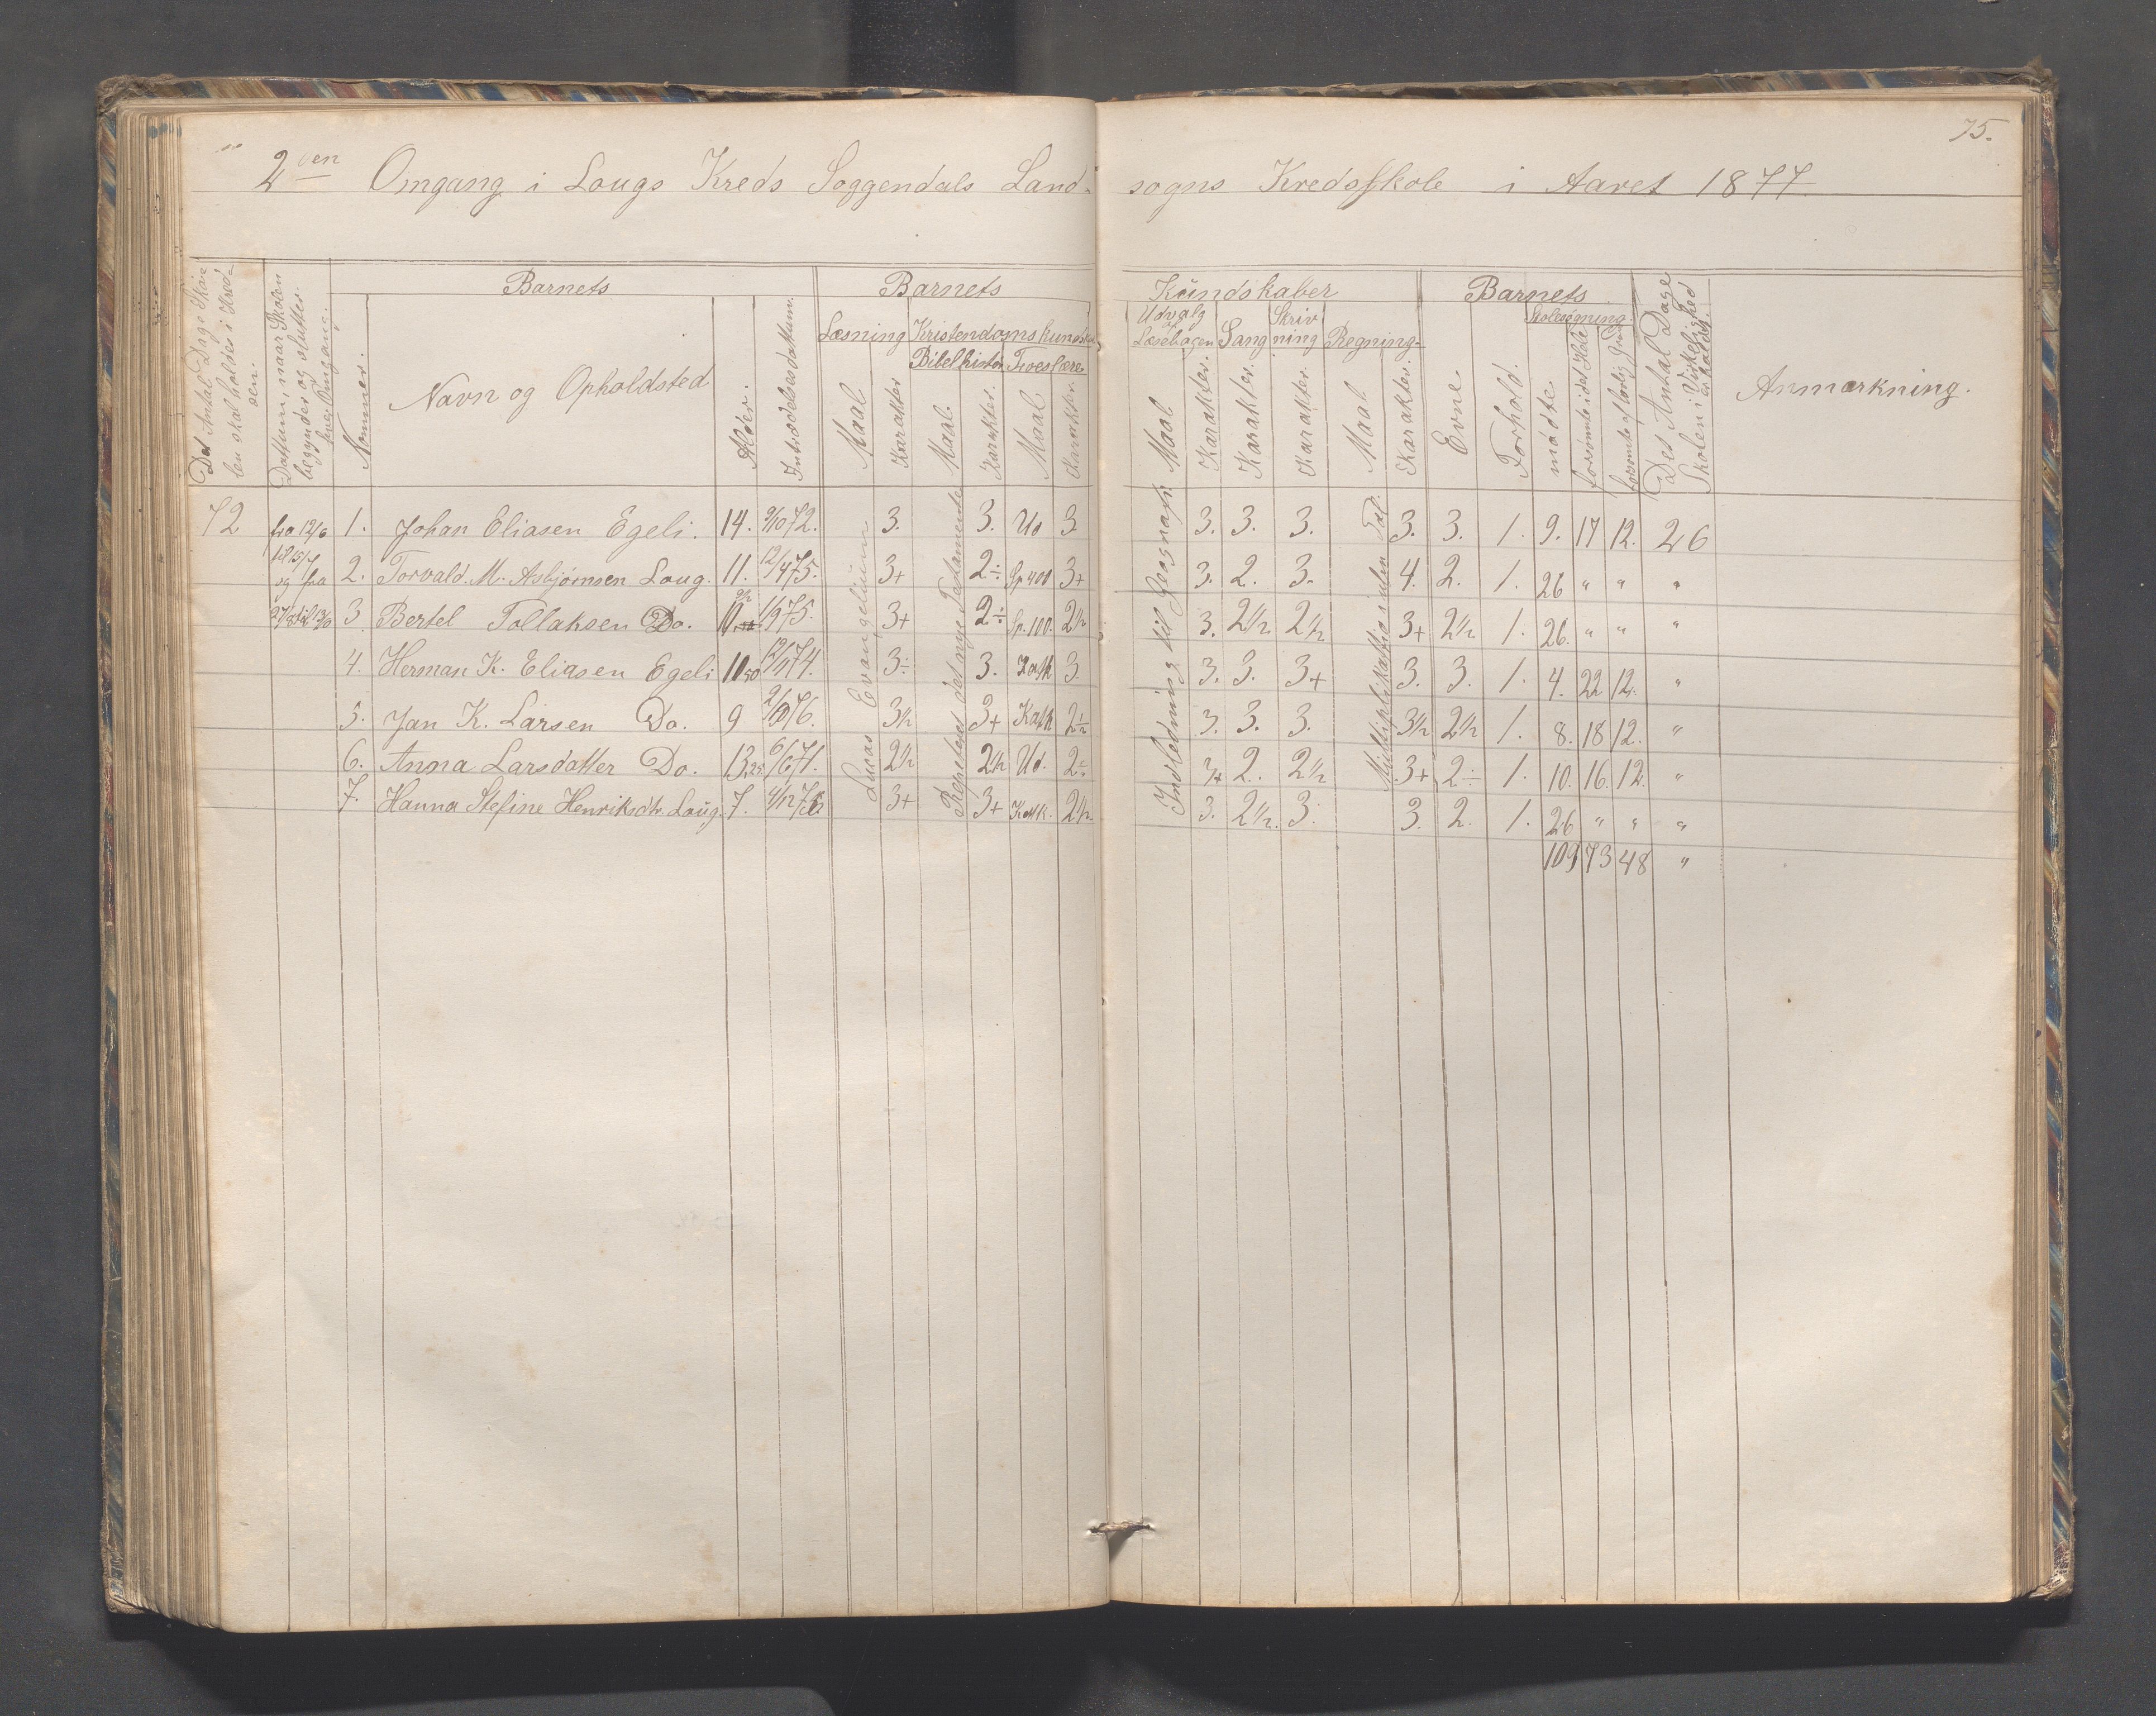 75.
2den Omgang i Lougs Kreds Soggendals Land- sogns Kredsskole i Aaret 1877
Det Antal Dage Skolen skal holdes i Kredsen.
Dattum, naar Skolen begyndes og sluttes hver Omgang.
Barnets
Nummer.
Navn og Opholdsted
Alder.
Indtrædelsesdattum.
Barnets Kundskaber
Læsning
Maal
Karakter
Kristendomskundskab
Bibelhistorie
Maal.
Karakter.
Troeslære
Maal
Karakter.
Udvalg af Læsebogen
Maal
Karakter.
Sang
Karakter.
Skrivning
Karakter.
Regning
Maal
Karakter.
Barnets
Evne
Forhold.
Skolesøgning.
mødte
forsømte i det Hele
forsømte af lovlig Grund
Det Antal Dage Skolen i Virkelighed er holdt.
Anmærkning.
72 fra 12/6 1. Johan Eliasen Egeli. 14. 9/10 72. 3. 3. Ud 3 3. 3. 3. 3. 3. 1. 9. 17 12. 26
til 15/7 og fra 2. Torvald. M. Asbjørnsen Loug. 11. 12/4 75. 3+ 2÷ Sp 400 3+ 3. 2. 3. 4. 2. 1. 26 " " "
27/8 til 13/10 3 Bertel Tollaksen Do. 10 1/9 75. 3+ 2÷ Sp. 100. 2½ 3. 2½. 2½ 3+ 2½ 1. 26. " " "
4. Herman K. Eliasen Egeli 10 50 12/11 74. 3÷ 3. Katk 3 3. 3. 3+ 3. 3. 1. 4. 22 12. "
5. Jan K. Larsen Do. 9 2/10 76. 3½ 3+ Katk 2÷ 3. 3. 3. 3½ 2½ 1. 8. 18 12. "
6. Anna Larsdatter Do. 13,25 6/6 71. 2½ 2½ Ud. 2÷ 3+ 2. 2½ 3+ 2÷ 1. 10. 16. 12. "
7. Hanna Stefine Henriksdtr. Loug. 7. 4/12 76 3+ 3+ Katk. 2½. 3. 2½. 3. 3. 2. 1. 26 " " "
109 73 48 "
Lucas Evangelium
Repeteret det nye Testamente
Indledning til Geografi
Multiplikattio i uten Tal.